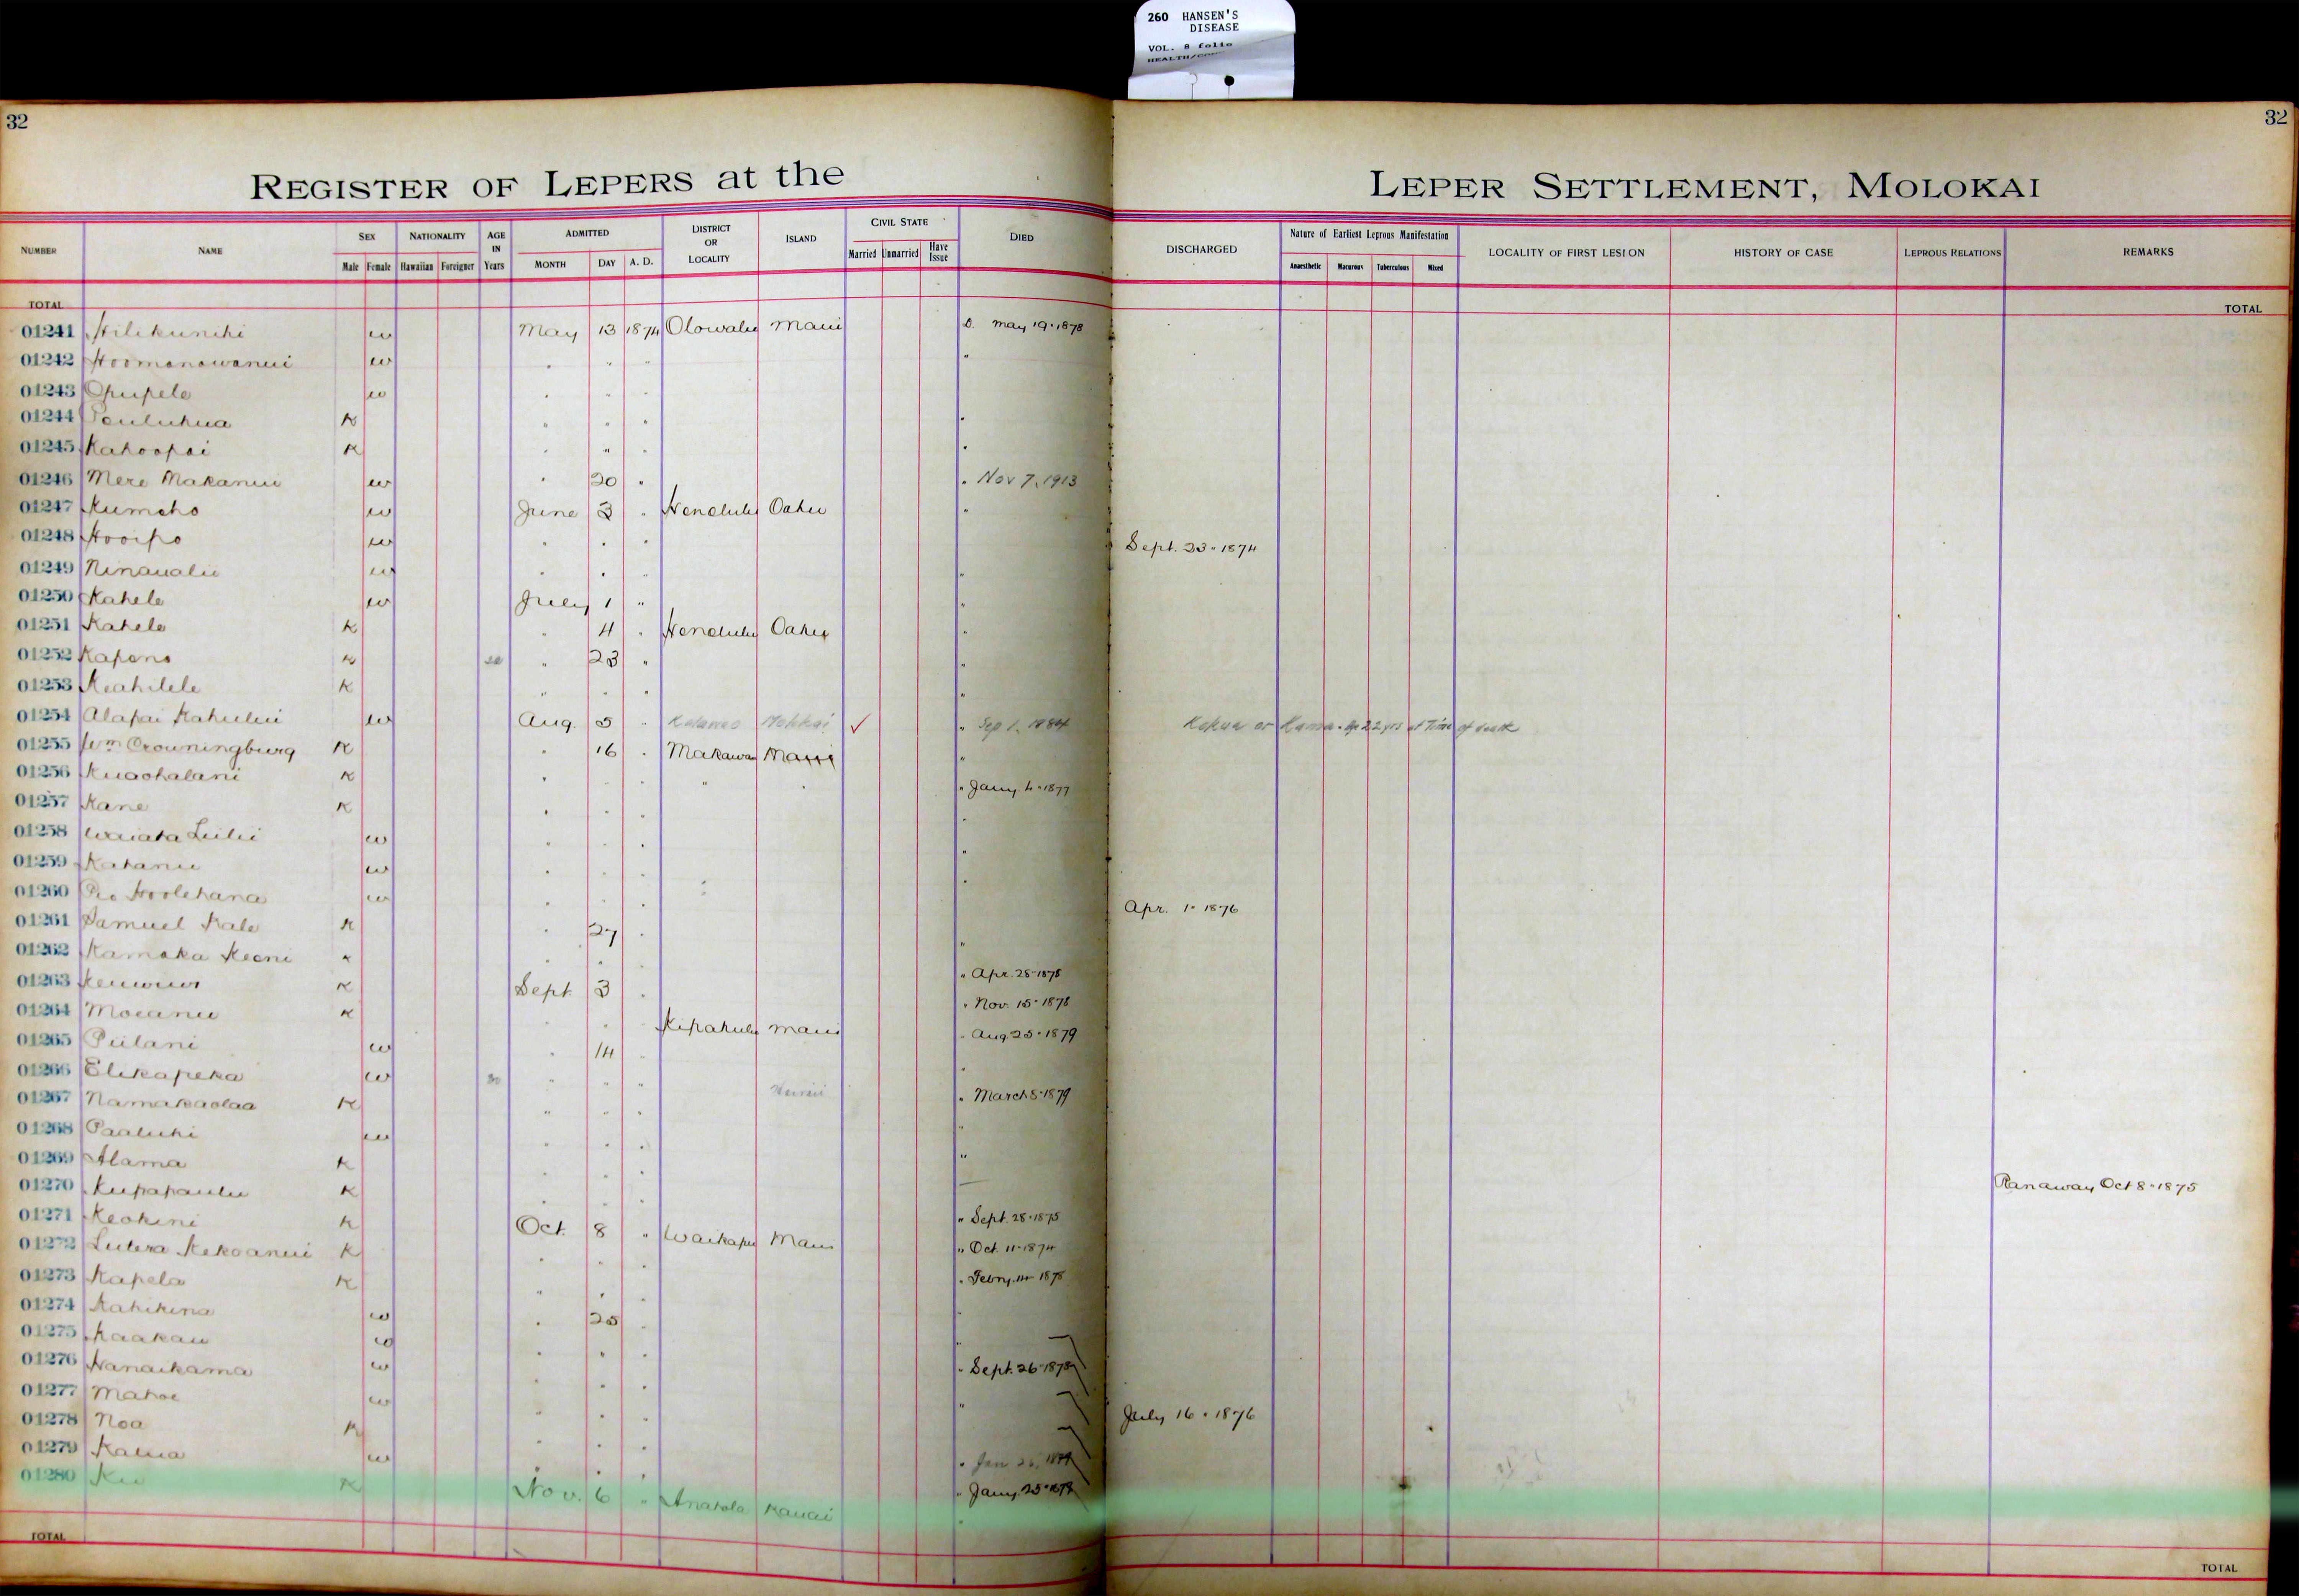 260 HANSEN'S
DISEASE
VOL. 8 folio
32
32
REGISTER OF LEPERS at the LEPER SETTLEMENT, MOLOKAI
NUMBER NAME SEX NATIONALITY AGE IN Years ADMITTED DISTRICT OR LOCALITY ISLAND CIVIL STATE DIED DISCHARGED Nature of Earliest Leprous Manifestation LOCALITY OF FIRST LESION HISTORY OF CASE LEPROUS RELATIONS REMARKS
Male Female Hawaiian Foreigner MONTH DAY A. D. Married Unmarried Have Issue Anaesthetic Macurous Tuberculous Mixed
TOTAL TOTAL
01241 Hilikunihi w May 13 1874 Olowalu Maui D. May 19 - 1878
01242 Hoomanawanui w " " " "
01243 Opupele w " " "
01244 K " " " "
01245 Kahoopai K " " " "
01246 Mere Makanui w " 20 " " Nov 7, 1913
01247 Kumeho w June 3 " Honolulu Oahu "
01248 Hooipo w " " " Sept. 23 - 1874
01249 Ninaualii w " " " "
01250 Kahele w July 1 " "
01251 Kahele K " 4 " Honolulu Oahu "
01252 Kapena K " 23 " "
01253 Keahilele K " " " "
01254 Alapai Kahului w Aug. 5 " Molokai ✓ " Sep 1, 1884 Kokua or 22 yrs at Time of death
01255 Wm Crowningburg K " 16 " Makawao Maui "
01256 Kuaohalani K " " " " " " Jany. 4 - 1877
01257 Kane K " " " "
01258 Waiata Luilii w " " " "
01259 Kahanu w " " " "
01260 Hoolehana w " " " Apr. 1 - 1876
01261 Samuel Kale K " 27 " "
01262 Kamaka Keoni K " " " Apr. 28 - 1878
01263 K Sept. 3 " " Nov. 15 - 1878
01264 Moeanu K " " " Kipahulu Maui " Aug 25 - 1879
01265 Piilani w " 14 " "
01266 Elikapeka w 30 " " " Hawaii " March 8 - 1879
01267 Namakaolaa K " " " "
01268 Paaluhi w " " " "
01269 Alama K " " "
01270 Kupapaulu K " " " Ranaway Oct 8 - 1875
01271 Keokini K Oct. 8 " Waikapu Maui " Sept. 28 - 1875
01272 Lutera Kekoanui K " " " " Oct. 11 - 1874
01273 Kapela K " " " " Febry. 14 - 1878
01274 Kahikina w " 25 " "
01275 Kaakau w " " " "
01276 Nanaikama w " " " " Sept. 26 - 1878
01277 Mahoe w " " " "
01278 Noa K " " " July 16 - 1876
01279 Kalua w " " " " Jan
01280 Ku K Nov. 6 " Anahola Kauai " Jany. 25
TOTAL
TOTAL